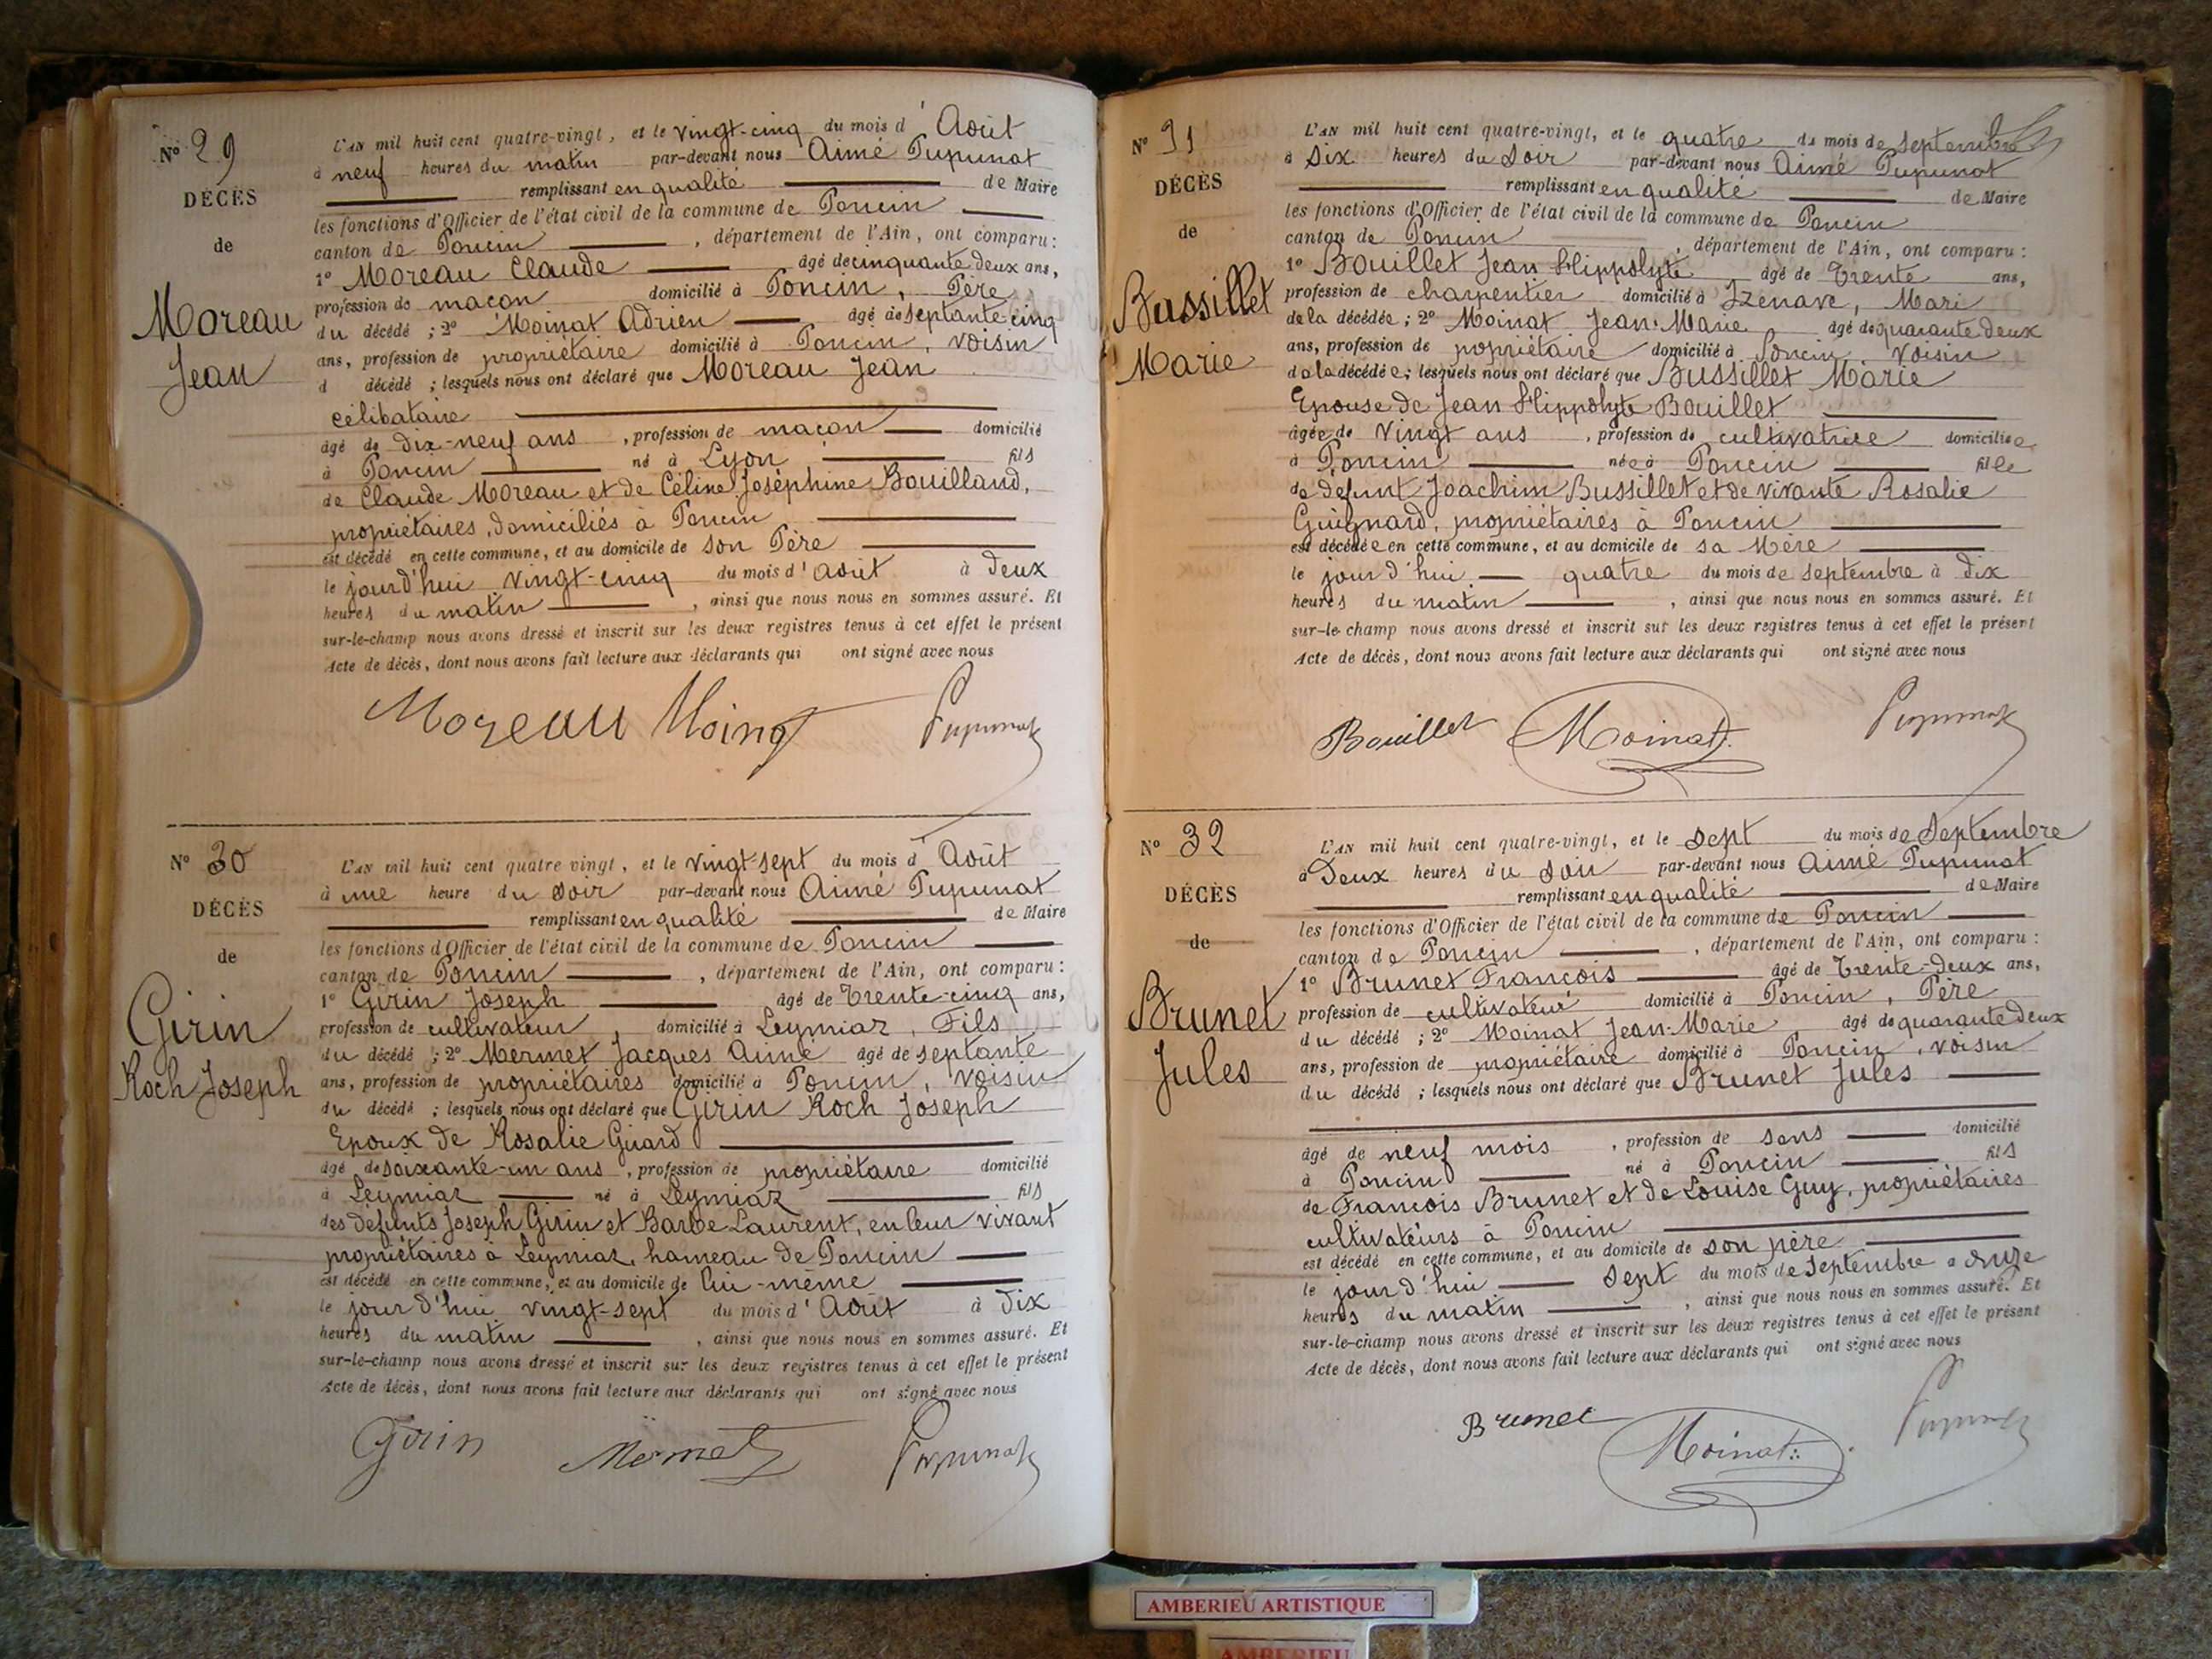 N° 29
DÉCÈS
de
Moreau
Jean
L'AN mil huit cent quatre-vingt, et le vingt-cinq du mois d'Août
à neuf heures du matin par-devant nous Aimé Pupunat
remplissant en qualité de Maire
les fonctions d'Officier de l'état civil de la commune de Poncin
canton de Poncin, département de l'Ain, ont comparu:
1° Moreau Claude âgé de cinquante deux ans,
profession de maçon domicilié à Poncin, Père
du décédé ; 2° Moinat Adrien âgé de septante cinq
ans, profession de propriétaire domicilié à Poncin, voisin
d décédé ; lesquels nous ont déclaré que Moreau Jean
célibataire
âgé de dix-neuf ans, profession de maçon domicilié
à Poncin né à Lyon fils
de Claude Moreau et de Céline Joséphine Bouilland,
propriétaires, domiciliés à Poncin
est décédé en cette commune, et au domicile de son Père
le jourd'hui vingt-cinq du mois d'août à deux
heures du matin, ainsi que nous nous en sommes assuré. Et
sur-le-champ nous avons dressé et inscrit sur les deux registres tenus à cet effet le présent
Acte de décès, dont nous avons fait lecture aux déclarants qui ont signé avec nous
Moreau Moinat Pupunat
N° 30
DÉCÈS
de
Girin
Roch Joseph
L'AN mil huit cent quatre vingt, et le vingt sept du mois d'Août
à une heure du soir par-devant nous Aimé Pupunat
remplissant en qualité de Maire
les fonctions d'Officier de l'état civil de la commune de Poncin
canton de Poncin, département de l'Ain, ont comparu:
1° Girin Joseph âgé de Trente-cinq ans,
profession de cultivateur, domicilié à Leymiaz, Fils
du décédé ; 2° Mermet Jacques Aimé âgé de septante
ans, profession de propriétaires domicilié à Poncin, voisin
du décédé ; lesquels nous ont déclaré que Girin Roch Joseph
Epoux de Rosalie Girard
âgé de soixante-un ans, profession de propriétaire domicilié
à Leymiaz né à Leymiaz fils
des défunts Joseph Girin et Barbe Laurent, en leur vivant
propriétaires à Leymiaz, hameau de Poncin
est décédé en cette commune, et au domicile de lui-même
le jour d'hui vingt-sept du mois d'Août à dix
heures du matin, ainsi que nous nous en sommes assuré. Et
sur-le-champ nous avons dressé et inscrit sur les deux registres tenus à cet effet le présent
Acte de décès, dont nous avons fait lecture aux déclarants qui ont signé avec nous
Girin Mermet Pupunat
N° 31
DÉCÈS
de
Bussillet
Marie
L'AN mil huit cent quatre-vingt, et le quatre du mois de septembre
à six heures du soir par-devant nous Aimé Pupunat
remplissant en qualité de Maire
les fonctions d'Officier de l'état civil de la commune de Poncin
canton de Poncin, département de l'Ain, ont comparu:
1° Bouillet Jean Hippolyte âgé de Trente ans,
profession de charpentier domicilié à Izenave, Mari
de la décédée ; 2° Moinat Jean-Marie âgé de quarante deux
ans, profession de propriétaire domicilié à Poncin, voisin
de la décédée ; lesquels nous ont déclaré que Bussillet Marie
Epouse de Jean Hippolyte Bouillet
âgée de vingt ans, profession de cultivatrice domiciliée
à Poncin née à Poncin fille
de défunt Joachim Bussillet et de vivante Rosalie
Guignard, propriétaires à Poncin
est décédée en cette commune, et au domicile de sa Mère
le jour d'hui quatre du mois de septembre à dix
heures du matin, ainsi que nous nous en sommes assuré. Et
sur-le-champ nous avons dressé et inscrit sur les deux registres tenus à cet effet le présent
Acte de décès, dont nous avons fait lecture aux déclarants qui ont signé avec nous
Bouillet Moinat Pupunat
N° 32
DÉCÈS
de
Brunet
Jules
L'AN mil huit cent quatre-vingt, et le sept du mois de Septembre
à Deux heures du soir par-devant nous Aimé Pupunat
remplissant en qualité de Maire
les fonctions d'Officier de l'état civil de la commune de Poncin
canton de Poncin, département de l'Ain, ont comparu:
1° Brunet François âgé de Trente-deux ans,
profession de cultivateur domicilié à Poncin, Père
du décédé ; 2° Moinat Jean-Marie âgé de quarante deux
ans, profession de propriétaire domicilié à Poncin, voisin
du décédé ; lesquels nous ont déclaré que Brunet Jules
âgé de neuf mois, profession de sans domicilié
à Poncin né à Poncin fils
de François Brunet et de Louise Guy, propriétaires
cultivateurs à Poncin
est décédé en cette commune, et au domicile de son père
le jour d'hui sept du mois de Septembre à onze
heures du matin, ainsi que nous nous en sommes assuré. Et
sur-le-champ nous avons dressé et inscrit sur les deux registres tenus à cet effet le présent
Acte de décès, dont nous avons fait lecture aux déclarants qui ont signé avec nous
Brunet Moinat Pupunat
AMBERIEU ARTISTIQUE
AMBERIEU